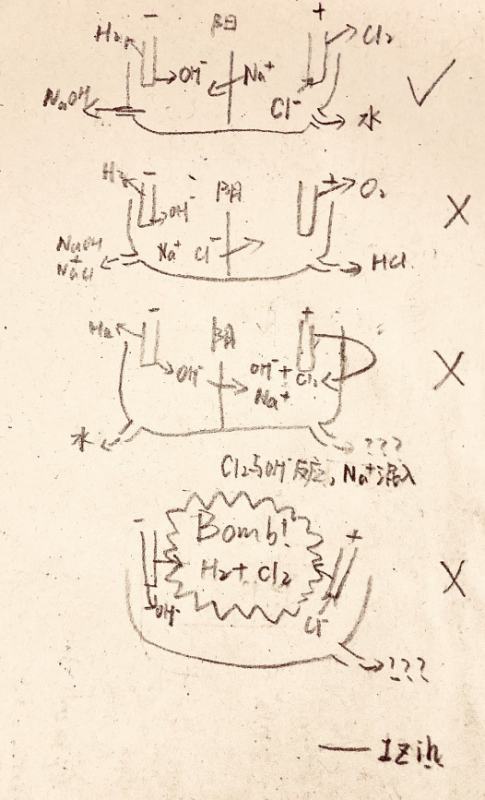 - 阳 +
H₂ Cl₂
OH⁻ Na⁺
NaOH Cl⁻ 水
✓
H₂ - 阴 + O₂
OH⁻
Na⁺ Cl⁻
NaOH
+
NaCl
HCl
×
- 阴 +
H₂
OH⁻ OH⁻+Cl₂
Na⁺
水 ???
×
Cl₂与OH⁻反应,Na⁺混入
- Bomb! +
H₂+Cl₂
OH⁻ Cl⁻
×
???
——Izih